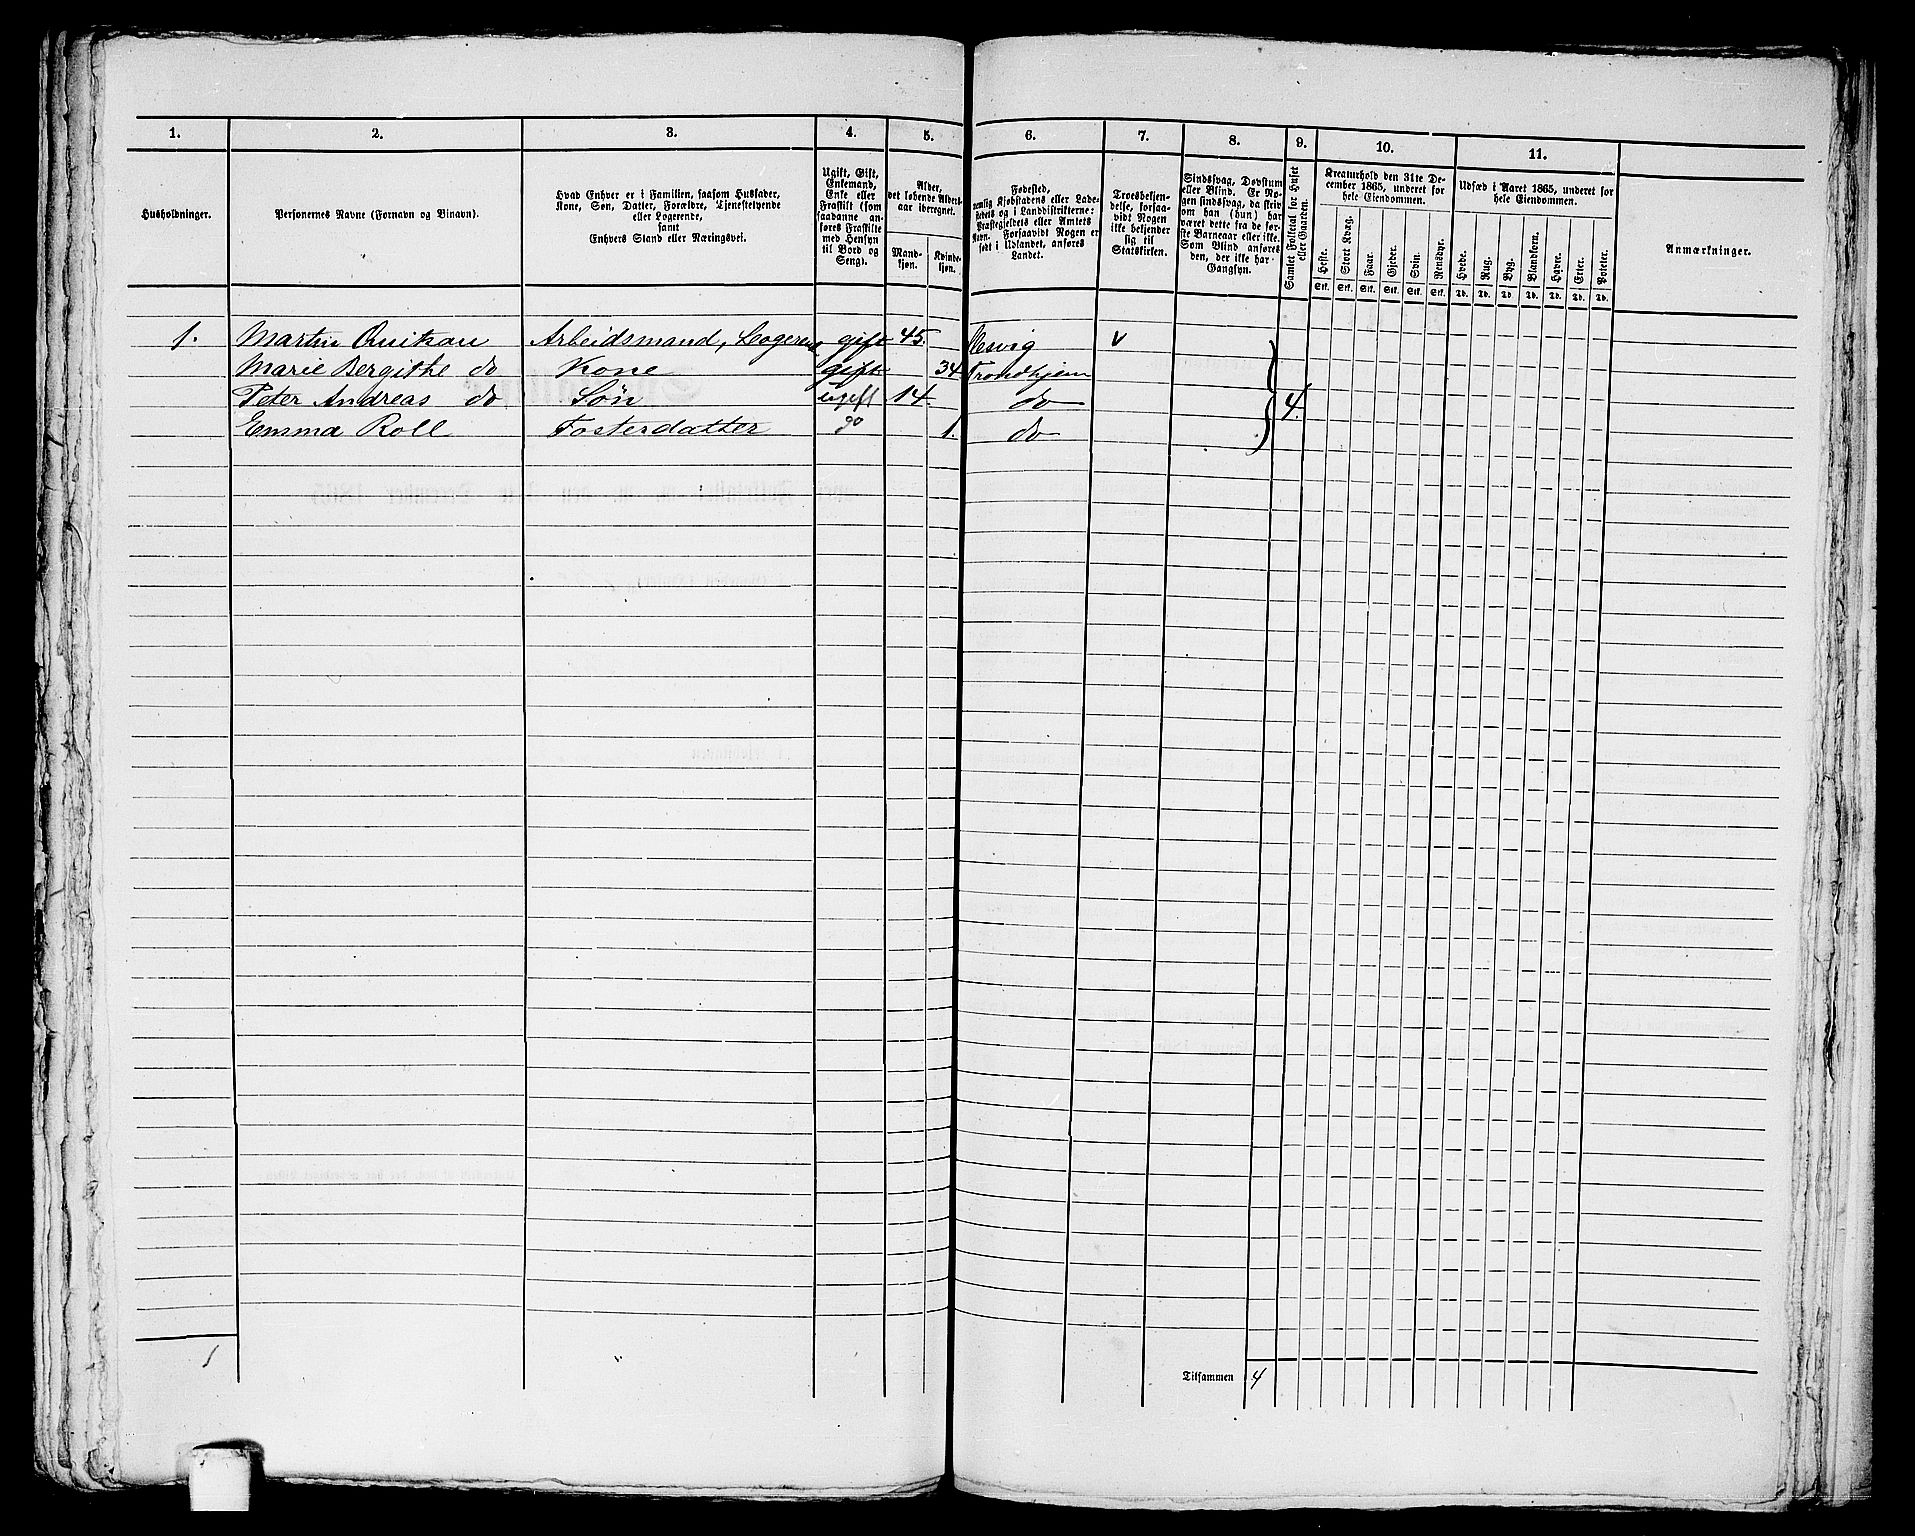 1. 2. 3. 4. 5. 6. 7. 8. 9. 10. 11.
Husholdninger.
Personernes Navne (Fornavn og Binavn).
Hvad Enhver er i Familien, saasom Husfader,
Kone, Søn, Datter, Forældre, Tjenestetyende
eller Logerende,
samt
Enhvers Stand eller Næringsvei.
Ugift, Gift,
Enkemand,
Enke eller
Fraskilt (som
saadanne an-
føres Fraskilte
med Hensyn
til Bord og
Seng).
Alder,
det løbende Alders-
aar iberegnet.
Mand-
kjøn.
Kvinde-
kjøn.
Fødested,
nemlig Kjøbstadens eller Lade-
stedets og i Landdistrikterne:
Præstegjeldets eller Amtets
Navn. Forsaavidt Nogen er
født i Udlandet, anføres
Landet.
Troesbekjen-
delse, forsaa-
vidt Nogen
ikke bekjender
sig til
Statskirken.
Sindssvag, Døvstum
eller Blind. Er No-
gen sindssvag, da skriv
om han (hun) har
været dette fra de før-
ste Barneaar eller ikke.
Som Blind anføres
den, der ikke har
Gangsyn.
Samlet Folketal for Huset
eller Gaarden.
Kreaturhold den 31te De-
cember 1865, underet for
hele Eiendommen.
Heste. Stort Kvæg. Faar. Gjeder. Svin. Rensdyr.
Stk. Stk. Stk. Stk. Stk. Stk.
Udsæd i Aaret 1865, underet for
hele Eiendommen.
Hvede. Rug. Byg. Blandkorn. Havre. Erter. Poteter.
Td. Td. Td. Td. Td. Td. Td.
Anmærkninger.
1. Martin Quikau Arbeidsmand, Logerend gift 45. v
Marie Bergithe do Kone gift 34 Trondhjem
Peter Andreas do Søn ugift 14. do 4.
Emma Roll Fosterdatter do 1. do
1
Tilsammen 4